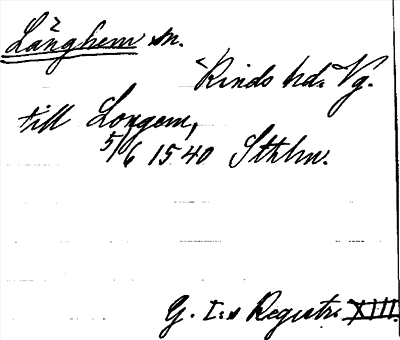 Långhem sn.
Kinds hd. Vg.
till Longem,
5/6 1540 Sthlm.
G. I:s Registr. XIII.